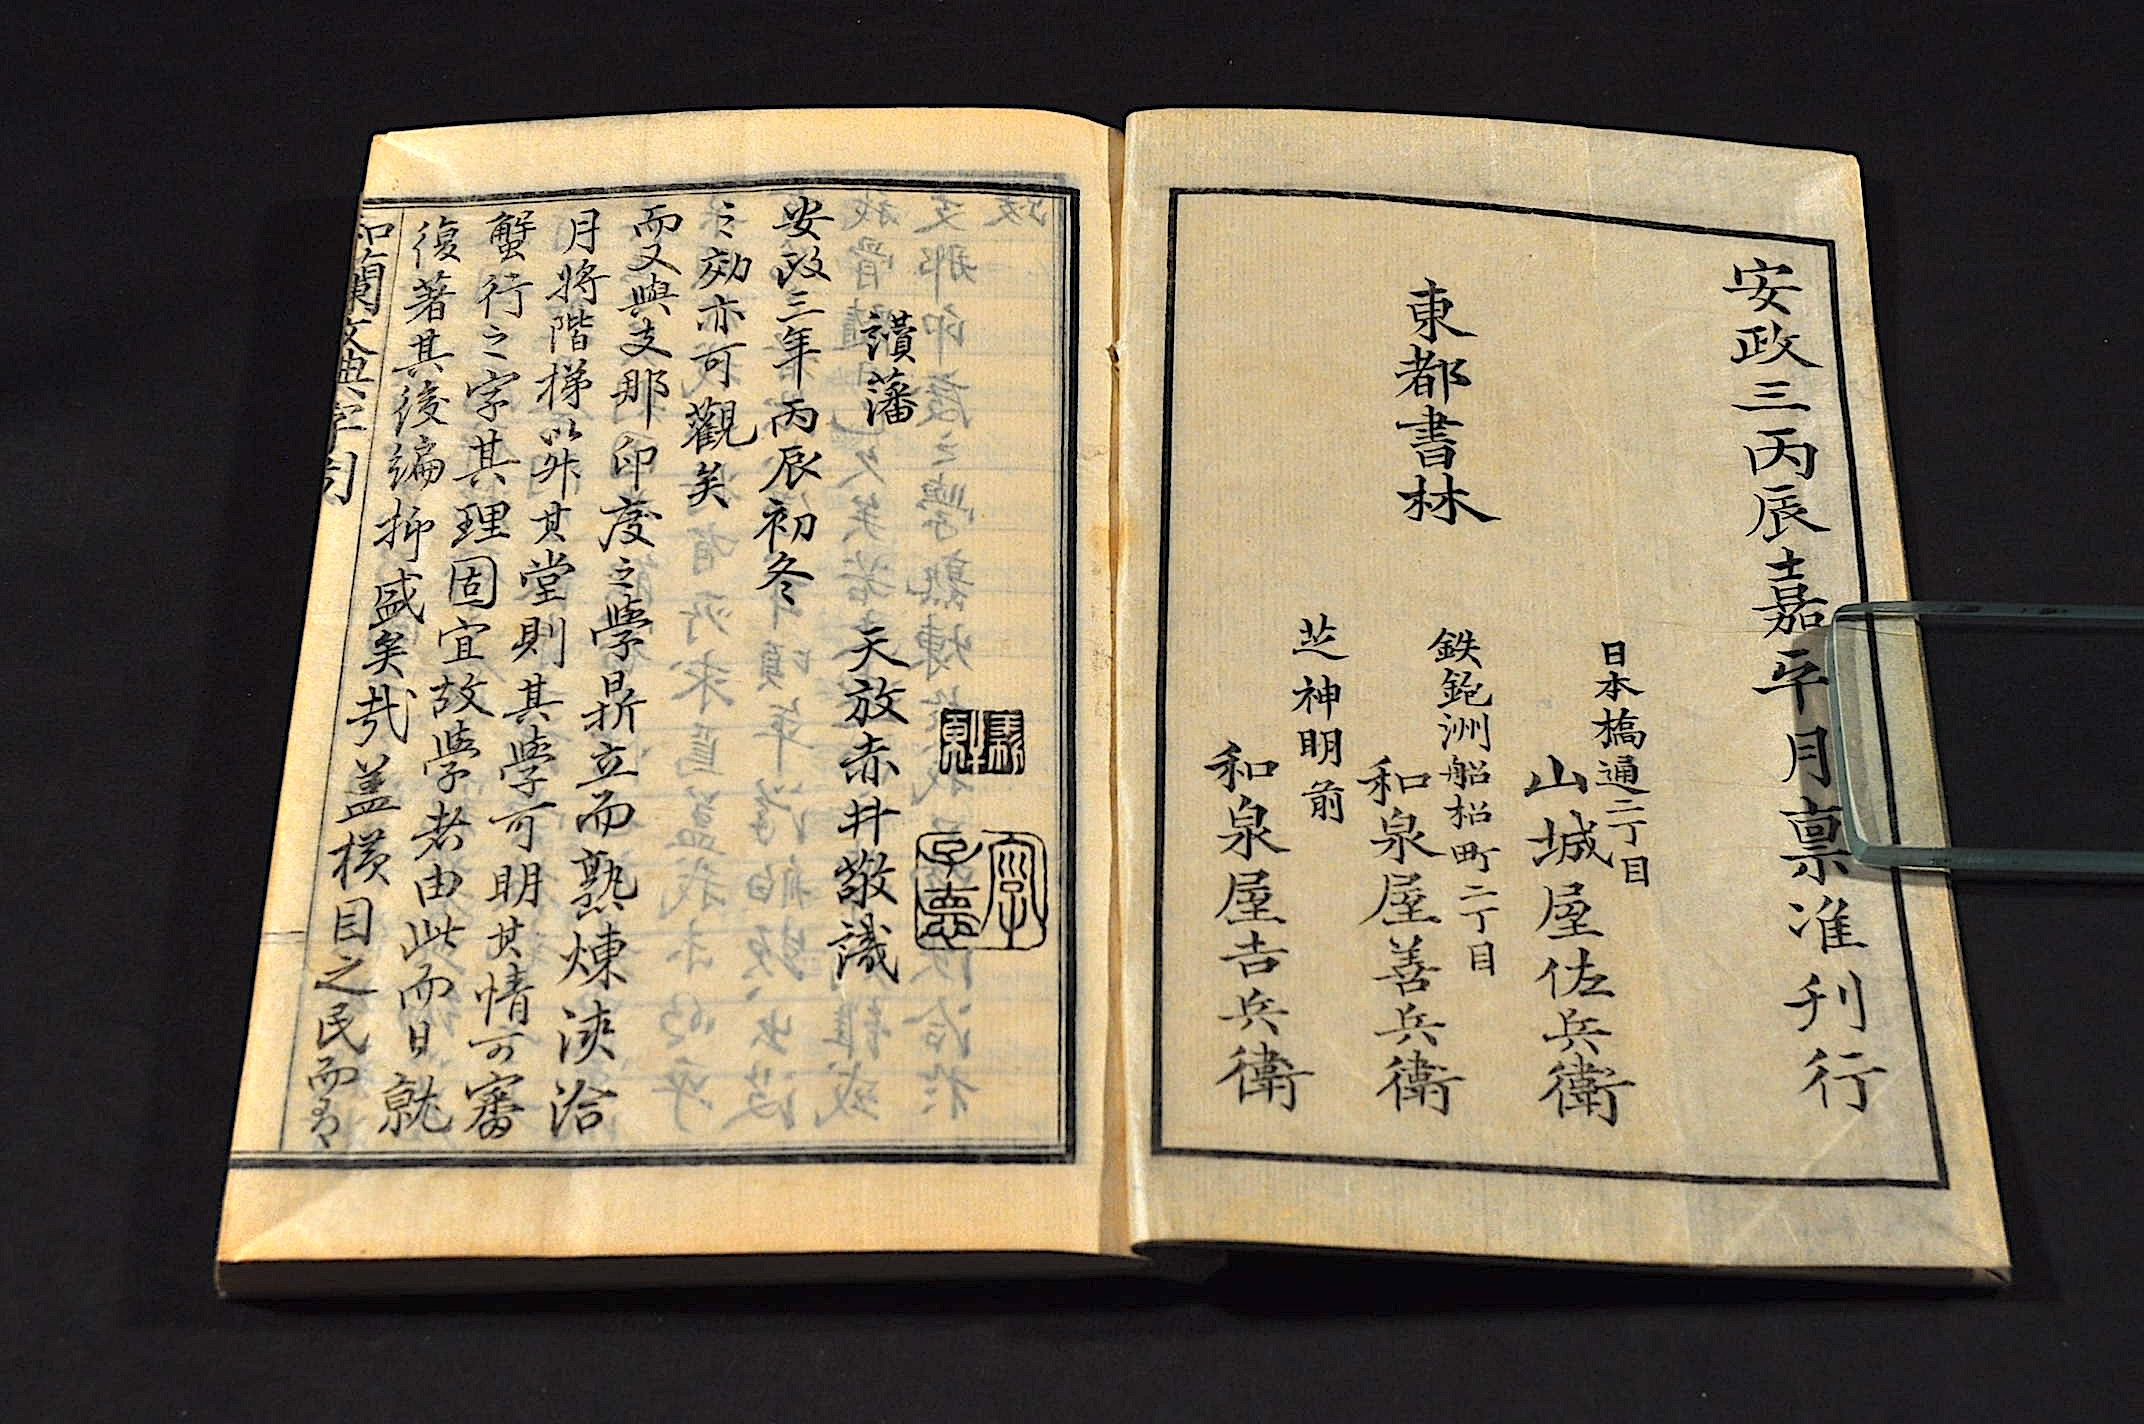 和蘭文典字引
復著其後編抑盛矣哉蓋横目之民而有
蟹行之字其理固宜故學者由此而日就
月將階梯以升其堂則其學可明其情可審
而又與支那印度之學鼎立而熟煉浹洽
之効亦可觀矣
安政三年丙辰初冬
讃藩 天放赤井敬識
安政三丙辰嘉平月稟准刊行
東都書林
日本橋通二丁目
山城屋佐兵衛
鉄鉋洲船松町二丁目
和泉屋善兵衛
芝神明前
和泉屋吉兵衛